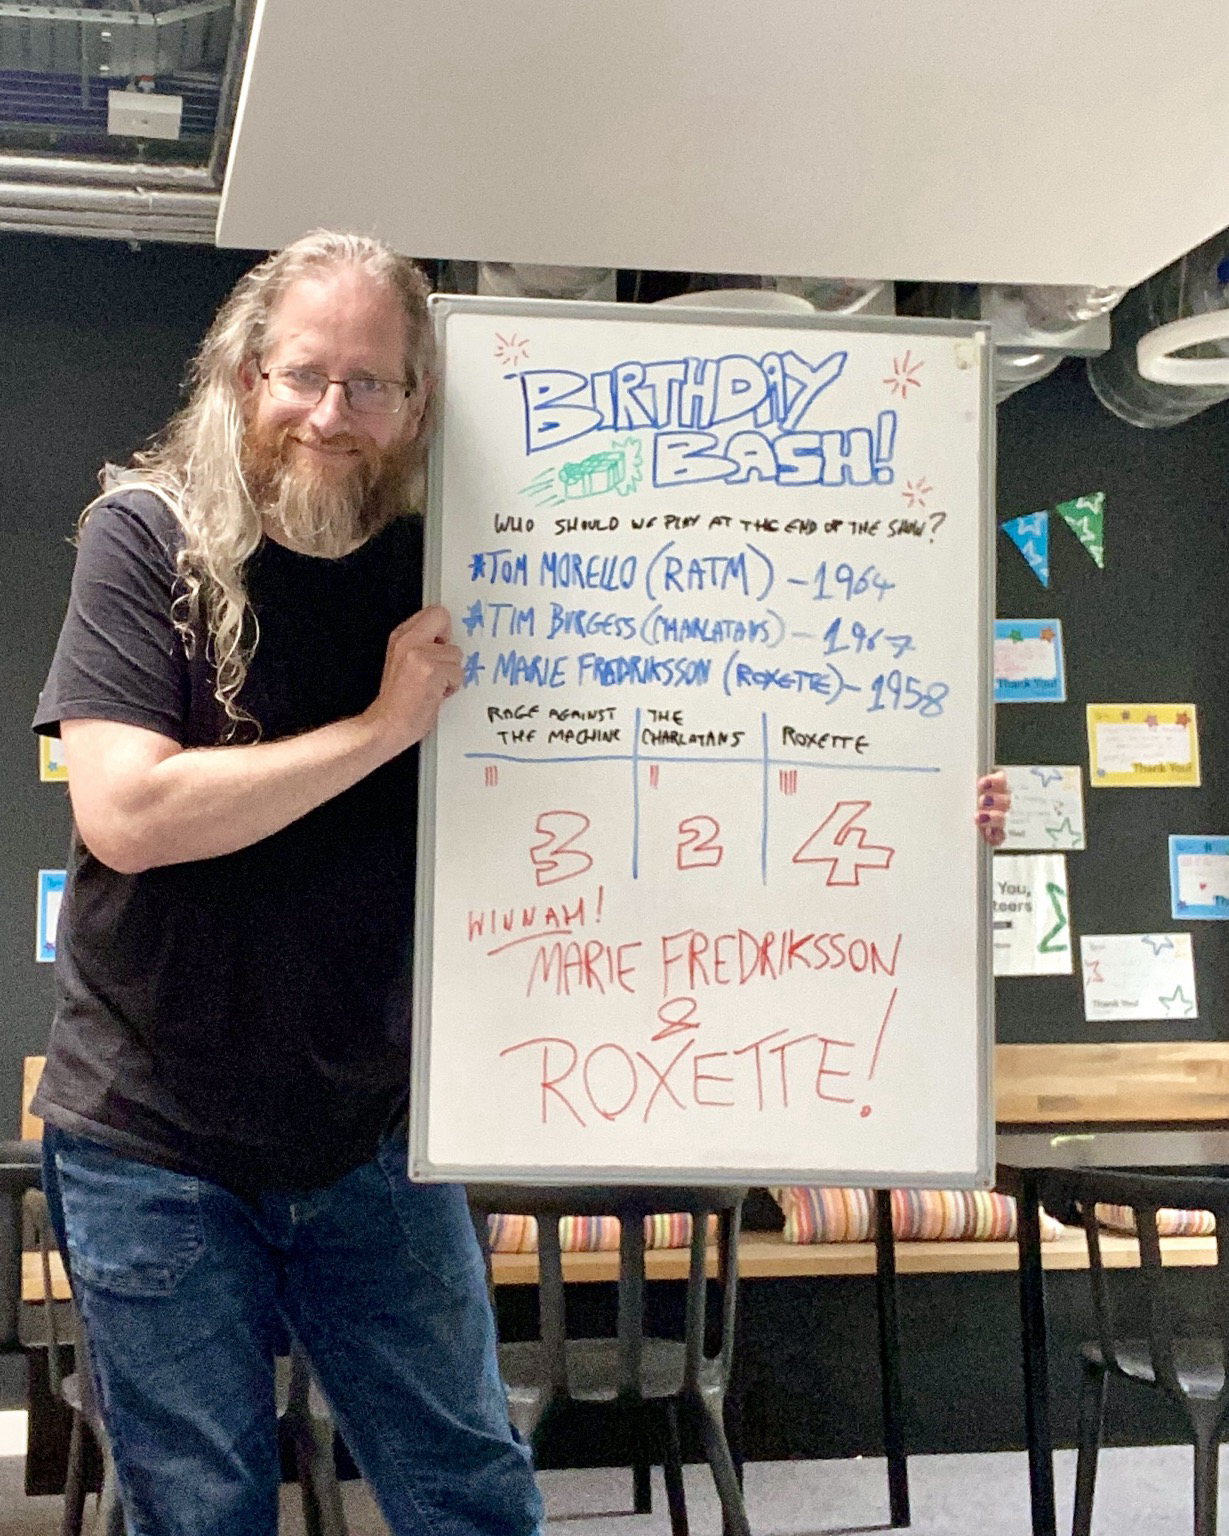 BIRTHDAY
BASH!
WHO SHOULD WE PLAY AT THE END OF THE SHOW?
*TOM MORELLO (RATM) - 1964
*TIM BURGESS (CHARLATANS) - 1967
* MARIE FREDRIKSSON (ROXETTE) - 1958
RAGE AGAINST
THE MACHINE
THE
CHARLATANS
ROXETTE
3
2
4
WINNAH!
MARIE FREDRIKSSON
&
ROXETTE!
Thank You!
Thank You!
You,
Thank You!